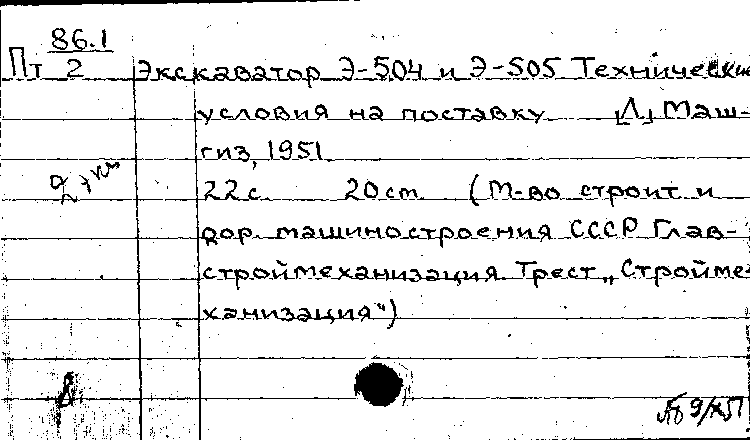 86.1
Пт 2 Экскаватор Э-504 и Э-505 Технические
условия на поставку [Л] Маш-
гиз, 1951
22 с. 20 cm (М-во строит и
дор. машиностроения СССР Глав-
строймеханизация. Трест „Стройме-
ханизация")
8